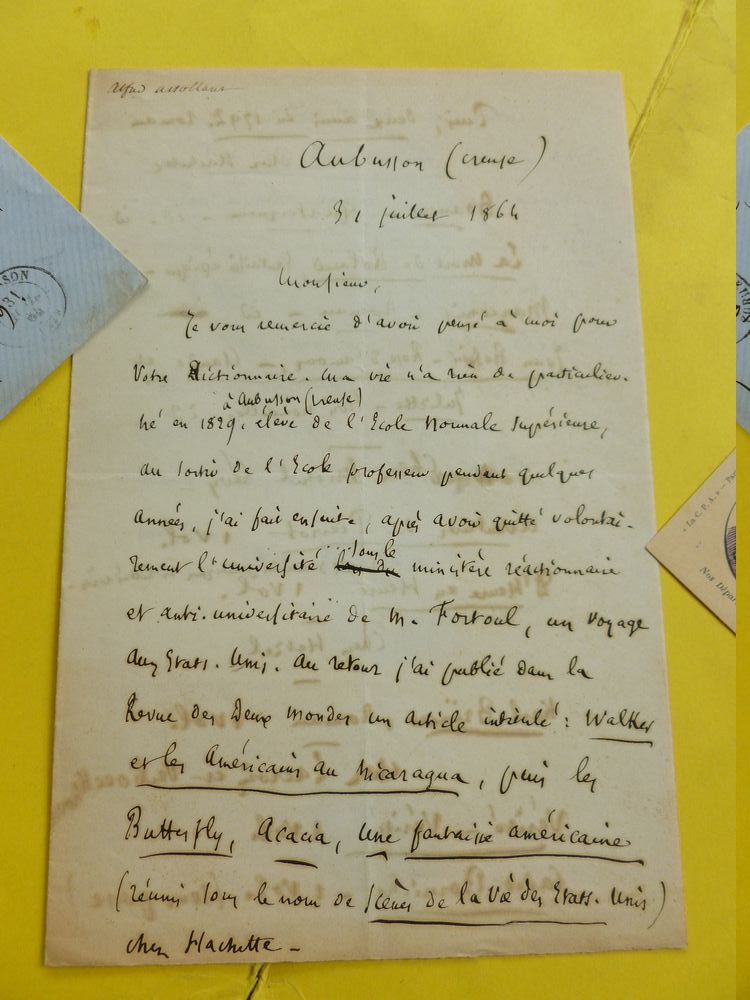 alfred assollant
Aubusson (Creuse)
31 juillet 1864
Monsieur,
Je vous remercie d'avoir pensé à moi pour
votre Dictionnaire. ma vie n'a rien de particulier.
à Aubusson (Creuse)
né en 1829, élève de l'Ecole Normale Supérieure,
au sortir de l'Ecole professeur pendant quelques
années, j'ai fait ensuite, après avoir quitté volontai-
sous le
rement l'université ministère réactionnaire
et anti-universitaire de M. Fortoul, un voyage
aux Etats-Unis. au retour j'ai publié dans la
Revue des Deux Mondes un article intitulé : Walker
et les Américains au Nicaragua, puis les
Butterfly, Acacia, Une fantaisie américaine
(réunis sous le nom de Scènes de la Vie des Etats-Unis)
chez Hachette -
SSON
31
BUS
« La C.P.A. » - Par
Nos Dépar